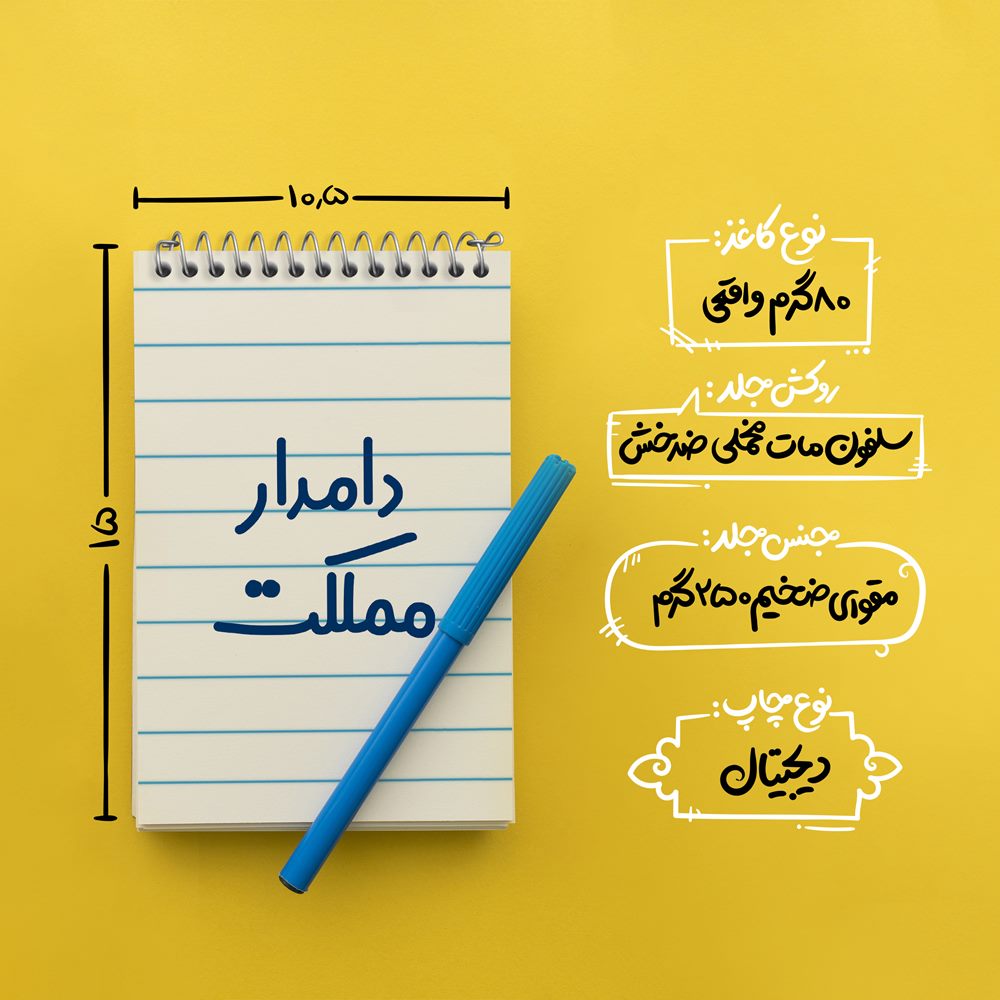 ۱۰٫۵
۱۵
دامدار
مملکت
نوع کاغذ:
۸۰گرم واقعی
روکش جلد:
سلفون مات مخملی ضدخش
جنس جلد:
مقوای ضخیم ۲۵۰گرم
نوع چاپ:
دیجیتال